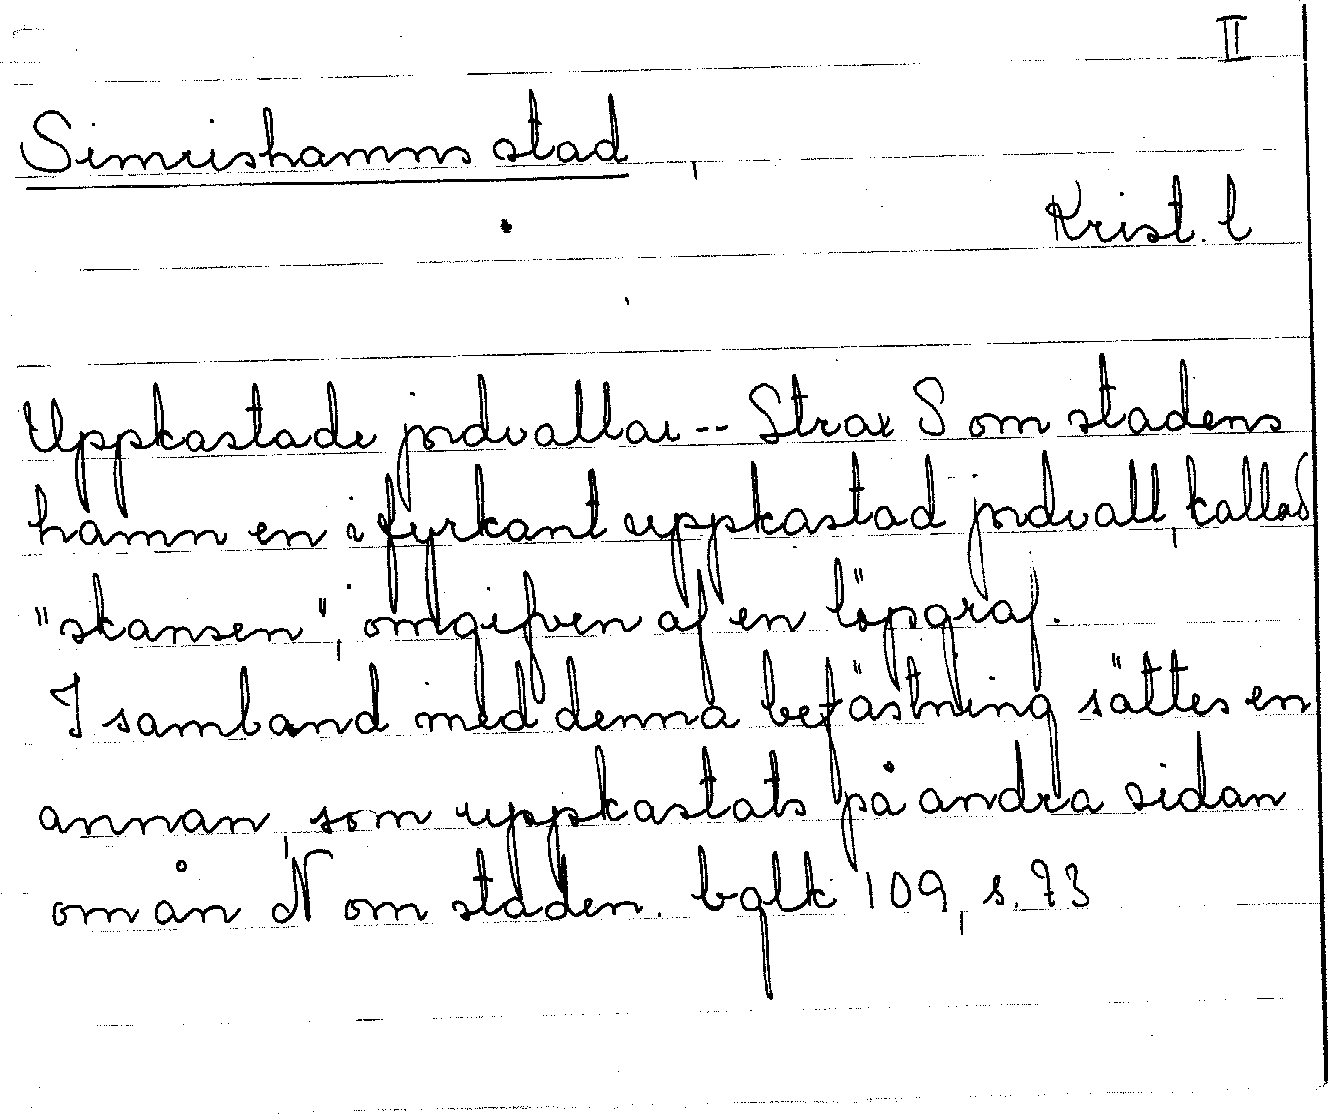 II
Simrishamns stad
Krist. l
Uppkastade jordvallar -- Strax S om stadens
hamn en i fyrkant uppkastad jordvall, kallad
"skansen", omgifven af en löpgraf.
I samband med denna befästning sättes en
annan, som uppkastats på andra sidan
om ån N om staden. bqlk 109, s. 73